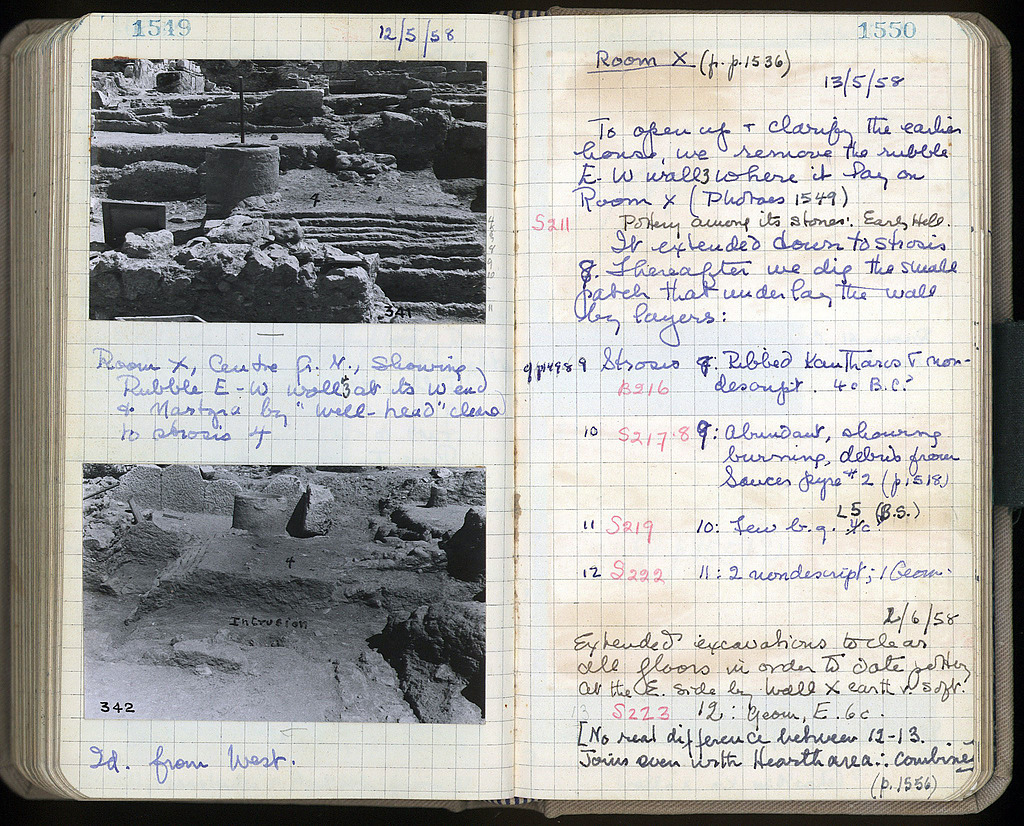 1549
12/5/58
4
341
Room X, Centre Gr. N., showing
Rubble E-W wall 3 at its W end
& Martyra by "well-head" cleared
to strosis 4
4
Intrusion
342
Id. from West.
1550
Room X (fr. p. 1536)
13/5/58
To open up + clarify the earlier
house, we remove the rubble
E-W wall 3 where it lay on
Room X (Photoes 1549)
S211 Pottery among its stones: Early Hell.
It extended down to strosis
8. Thereafter we dig the small
patch that underlay the wall
by layers:
9 Strosis 8: Ribbed Kantharos + non-
B216 descript. 4c B.C.?
10 S217-8 9: Abundant, showing
burning, debris from
Saucer Pyre #2 (p. 1518)
L5 (B.S.)
11 S219 10: Few b.g. 4c
12 S222 11: 2 nondescript; 1 Geom.
2/6/58
Extended excavations to clear
all floors in order to date pottery
at the E. side by Wall X earth v. soft.
13 S223 12: Geom, E. 6c.
[No real difference between 12-13.
Joins even with Hearth area ∴ combined
(p. 1556)